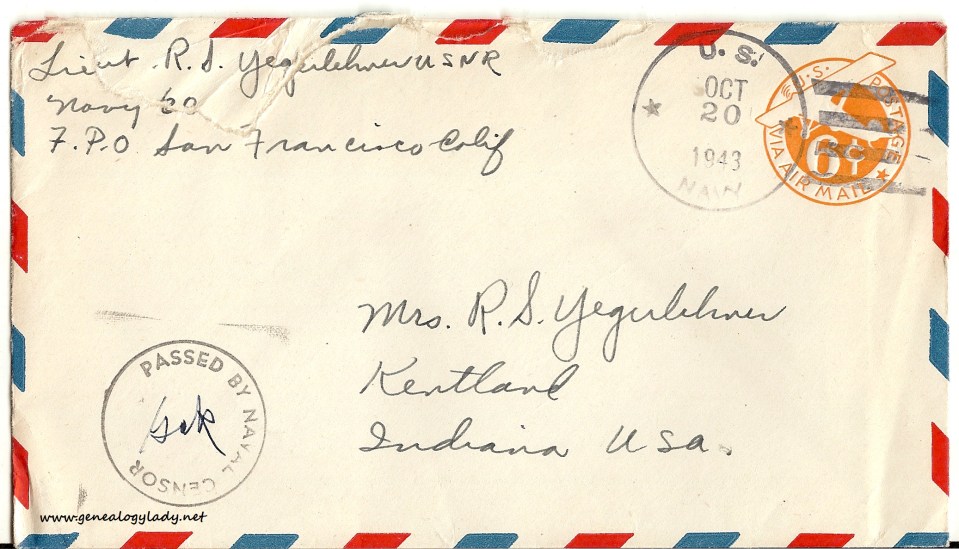 Lieut. R.S. Yegerlehner USNR
Navy 60
F.P.O San Francisco Calif
U.S.
OCT
20
1943
NAVY
U.S. POSTAGE
6¢
VIA AIR MAIL
Mrs. R.S. Yegerlehner
Kentland
Indiana USA.
PASSED BY NAVAL CENSOR
www.genealogylady.net